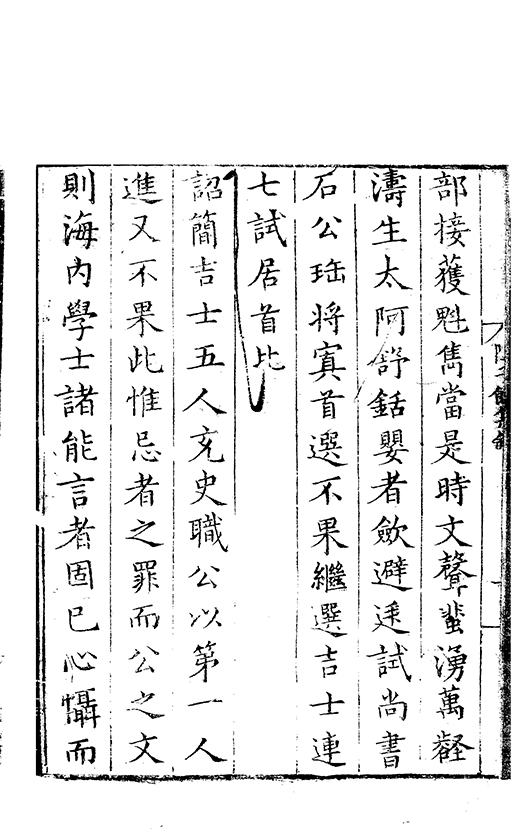 部接獲魁雋當是時文聲蜚湧萬壑
濤生太阿舒銛嬰者歛避迋試尚書
石公珤將寘首選不果繼選吉士連
七試居首比
詔簡吉士五人充史職公以第一人
進又不果此惟忌者之罪而公之文
則海內學士諸能言者固已心懾而